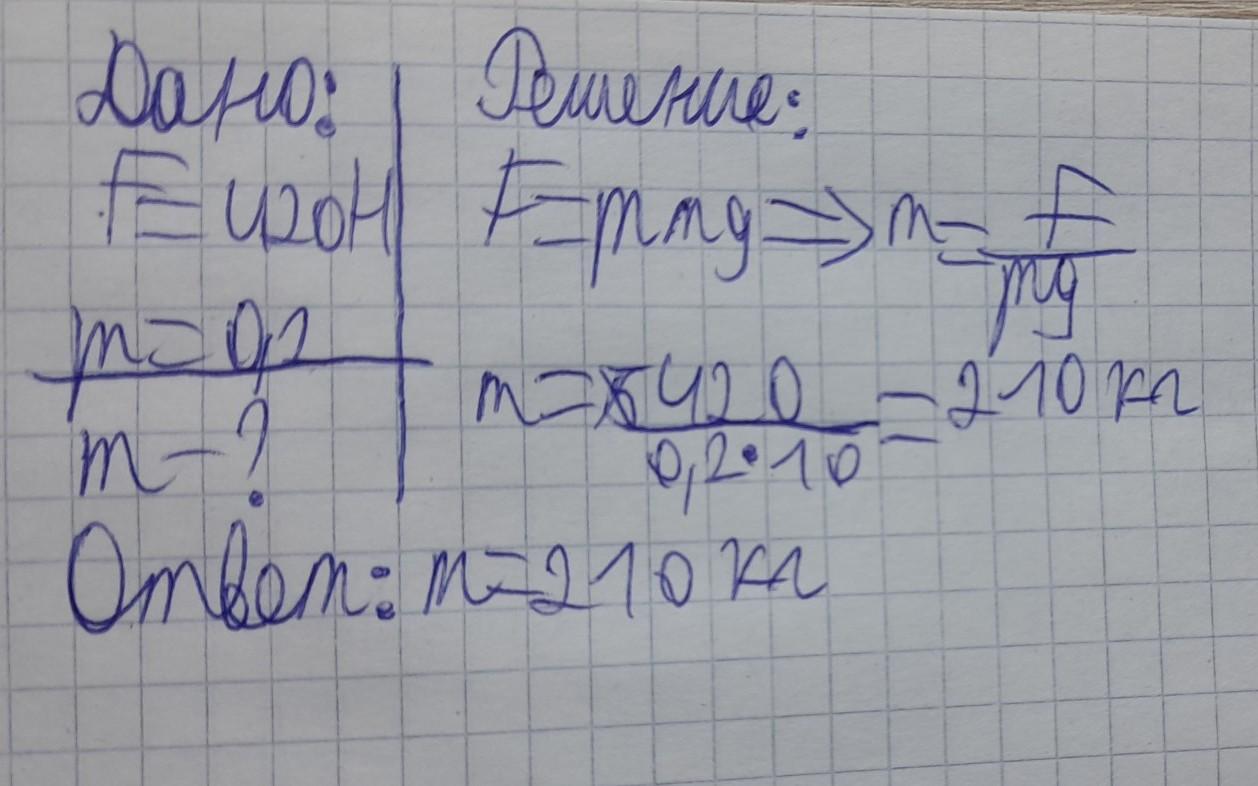 Дано:
F=420H
μ=0,2
m-?
Решение:
F=μmg⇒m=F/μg
m=420/0,2•10=210 кг
Ответ: m=210 кг